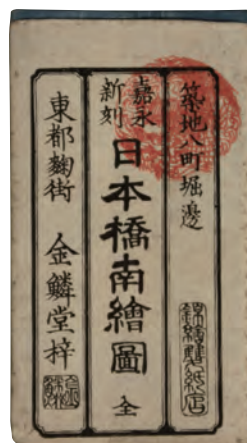 築地八町堀邊
錦繪雙紙店
嘉永
新刻
日本橋南繪圖 全
東都麴街 金鱗堂梓